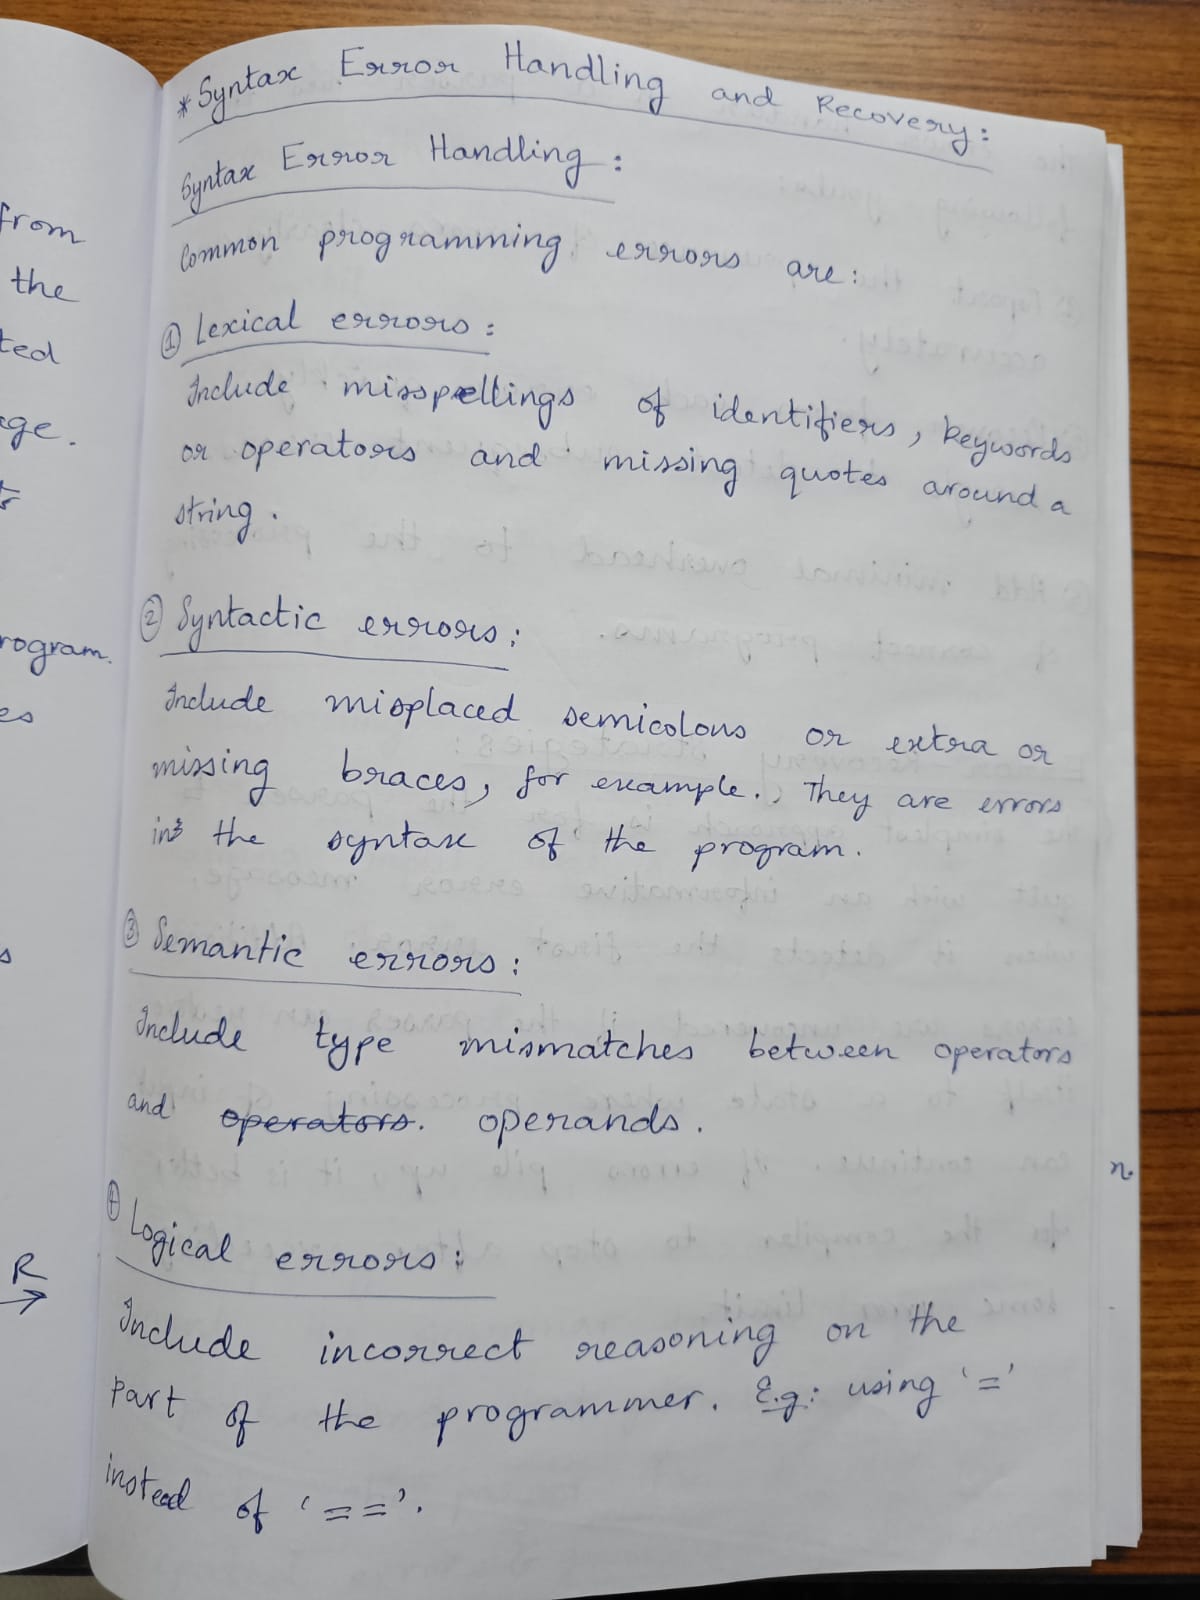 * Syntax Error Handling and Recovery:
Syntax Error Handling:
Common programming errors are:
① Lexical errors:
Include misspellings of identifiers, keywords
or operators and missing quotes around a
string.
② Syntactic errors:
Include misplaced semicolons or extra or
missing braces, for example. They are errors
in the syntax of the program.
③ Semantic errors:
Include type mismatches between operators
and operators. operands.
④ Logical errors:
Include incorrect reasoning on the
part of the programmer. E.g: using '='
instead of '=='.
from
the
ted
ge.
rogram.
es
s
R
→
n.